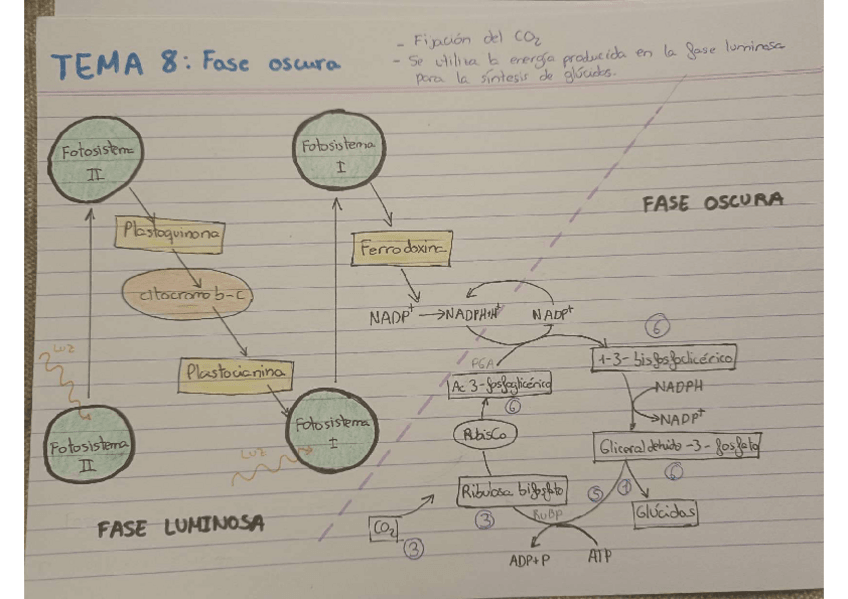 TEMA 8: Fase oscura
- Fijación del CO2
- Se utiliza la energía producida en la fase luminosa
para la síntesis de glúcidos.
Fotosistema
II
Fotosistema
I
FASE OSCURA
Plastoquinona
Ferrodoxina
citocromo b-c
NADP+
NADPH+H+
NADP+
LUZ
Plastocianina
PGA
Ac 3-fosfoglicérico
6
6
1-3-bisfosfoglicérico
NADPH
NADP+
Fotosistema
II
Fotosistema
I
LUZ
RubisCo
Gliceraldehido-3-fosfato
6
Ribulosa bifosfato
RuBP
3
5
1
Glúcidos
FASE LUMINOSA
CO2
3
ADP+P
ATP